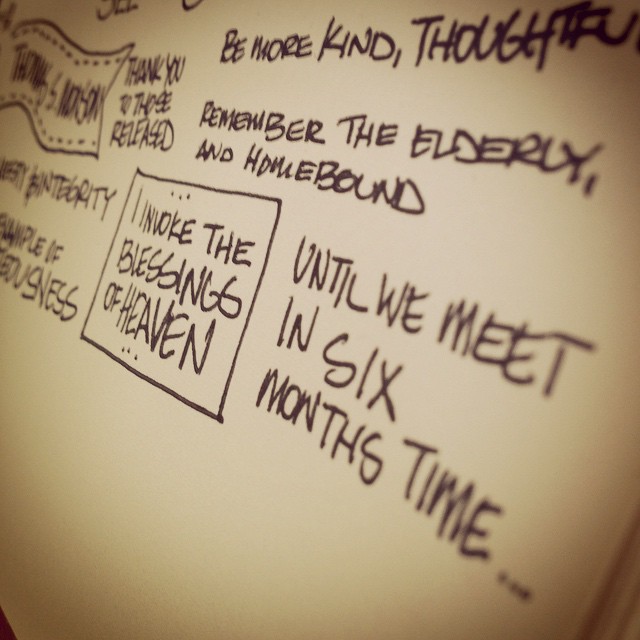 BE MORE KIND, THOUGHTFU
THOMAS S. MONSON
THANK YOU
TO THOSE
RELEASED
REMEMBER THE ELDERLY,
AND HOMEBOUND
INTEGRITY
OF
... I INVOKE THE
BLESSINGS
OF HEAVEN
...
UNTIL WE MEET
IN SIX
MONTHS TIME...